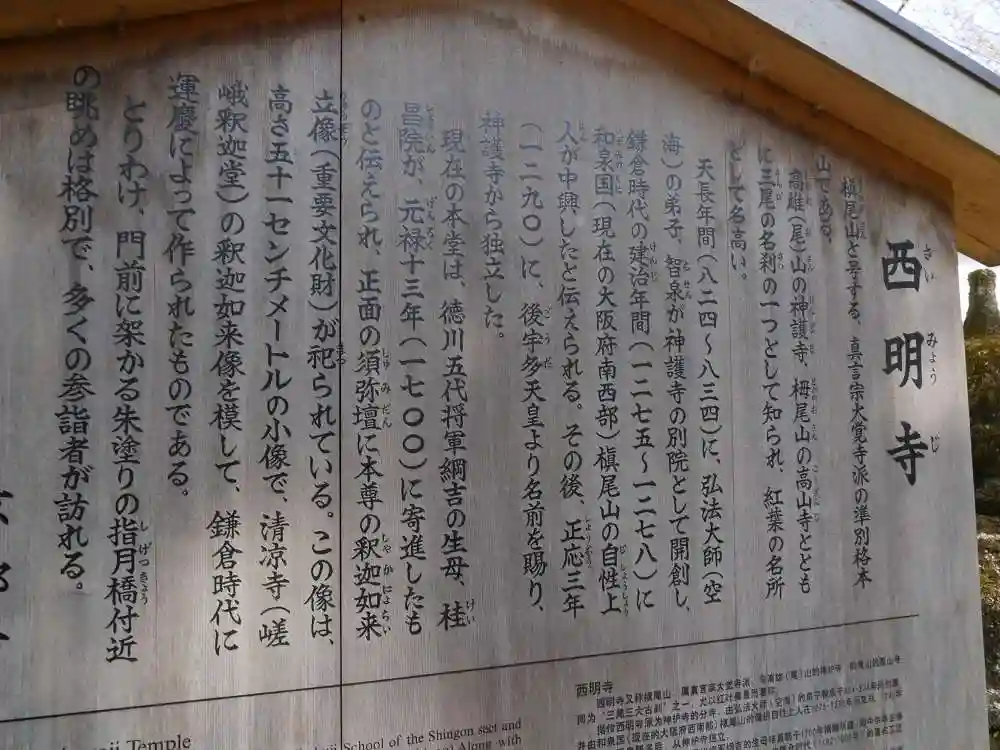 西明寺
さいみょうじ
槇尾山と号する、真言宗大覚寺派の準別格本
山である。
高雄(尾)山の神護寺、栂尾山の高山寺ととも
に三尾の名刹の一つとして知られ、紅葉の名所
として名高い。
天長年間(八二四〜八三四)に、弘法大師(空
海)の弟子、智泉が神護寺の別院として開創し、
鎌倉時代の建治年間(一二七五〜一二七八)に
和泉国(現在の大阪府南西部)槇尾山の自性上
人が中興したと伝えられる。その後、正応三年
(一二九〇)に、後宇多天皇より名前を賜り、
神護寺から独立した。
現在の本堂は、徳川五代将軍綱吉の生母、桂
昌院が、元禄十三年(一七〇〇)に寄進したも
のと伝えられ、正面の須弥壇に本尊の釈迦如来
立像(重要文化財)が祀られている。この像は、
高さ五十一センチメートルの小像で、清凉寺(嵯
峨釈迦堂)の釈迦如来像を模して、鎌倉時代に
運慶によって作られたものである。
とりわけ、門前に架かる朱塗りの指月橋付近
の眺めは格別で、多くの参詣者が訪れる。
Temple
School of the Shingon sect and
Along with
西明寺